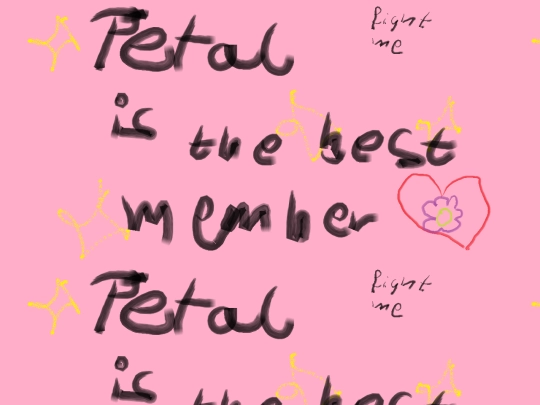 Petal
fight
me
is the best
member
Petal
fight
me
is the best